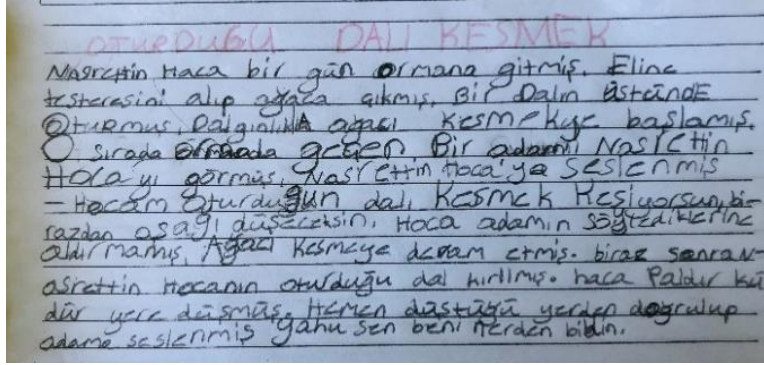 OTURDUĞU DALI KESMEK
Nasrettin Haca bir gün ormana gitmiş. Eline
testeresini alıp ağaca çıkmış, Bir Dalın üstünde
Oturmuş, Dalgınlıkla ağacı kesmekye başlamış.
O sırada ormada geçen Bir adam Nasrettin
Hoca'yı görmüş, Nasrettin Hoca'ya seslenmiş
- Hocam Oturduğun dalı Kesmek Kesiyorsun, bi-
razdan aşağı düşeceksin, Hoca adamın söylediklerine
aldırmamış, Ağacı Kesmeye devam etmiş. biraz sonra N-
asrettin Hocanın oturduğu dal kırılmış. haca Paldır kü
dür yere düşmüş. Hemen düştüğü yerden doğrulup
adama seslenmiş yahu sen beni nerden bildin.